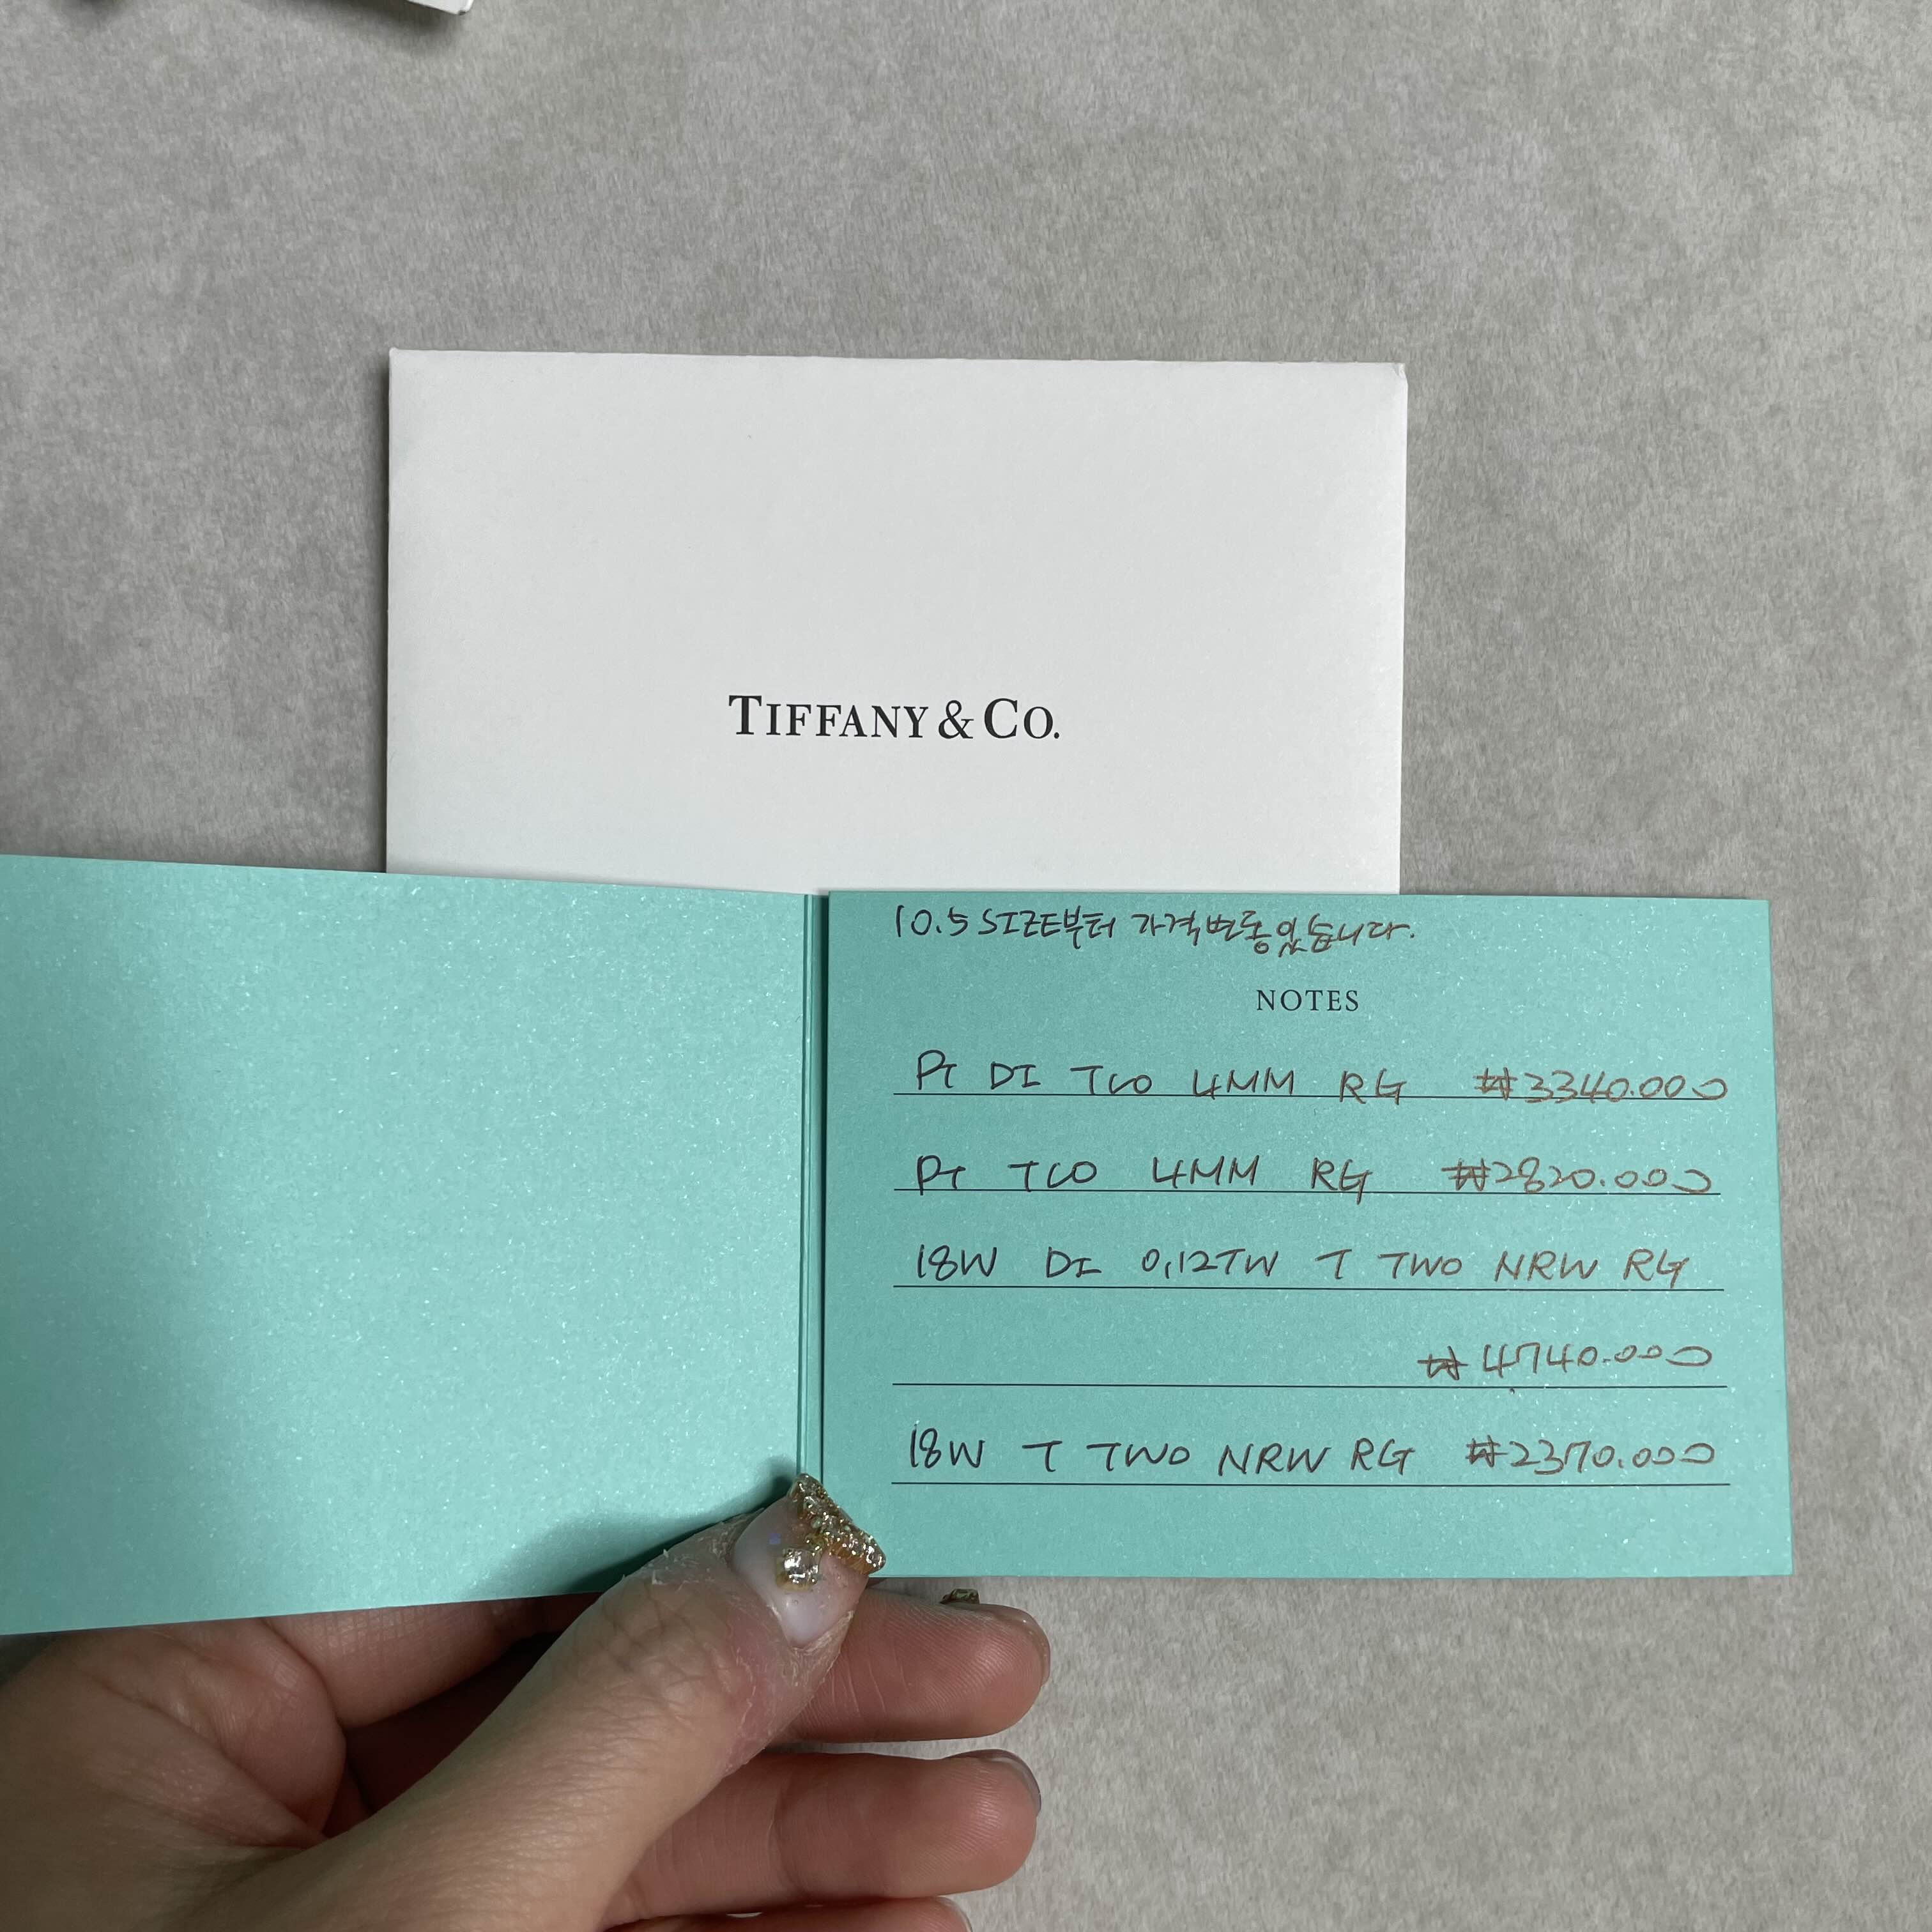 TIFFANY & CO.
10.5 SIZE부터 가격변동있습니다.
NOTES
Pt DI TCO 4MM RG ₩3340.000
Pt TCO 4MM RG ₩2820.000
18W DI 0,12TW T TWO NRW RG
₩4740.000
18W T TWO NRW RG ₩2370.000